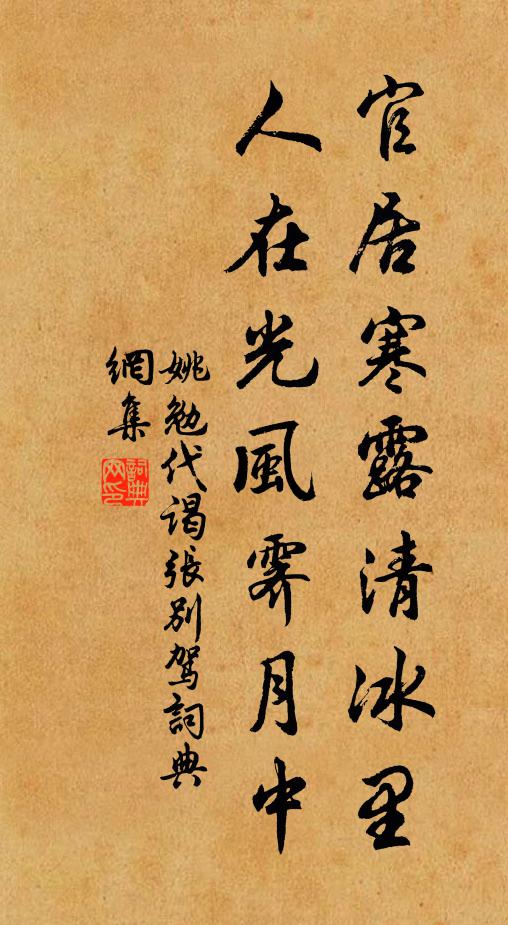 官居寒露清冰里
人在光風霽月中
姚勉代谒張别駕詞典
網集
詞典
网印